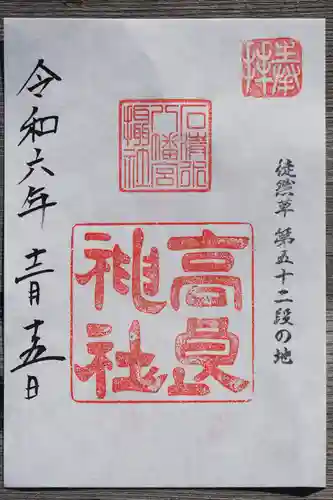 奉拝
徒然草 第五十二段の地
石清水
八幡宮
摂社
高良
神社
令和六年 十二月 十五日